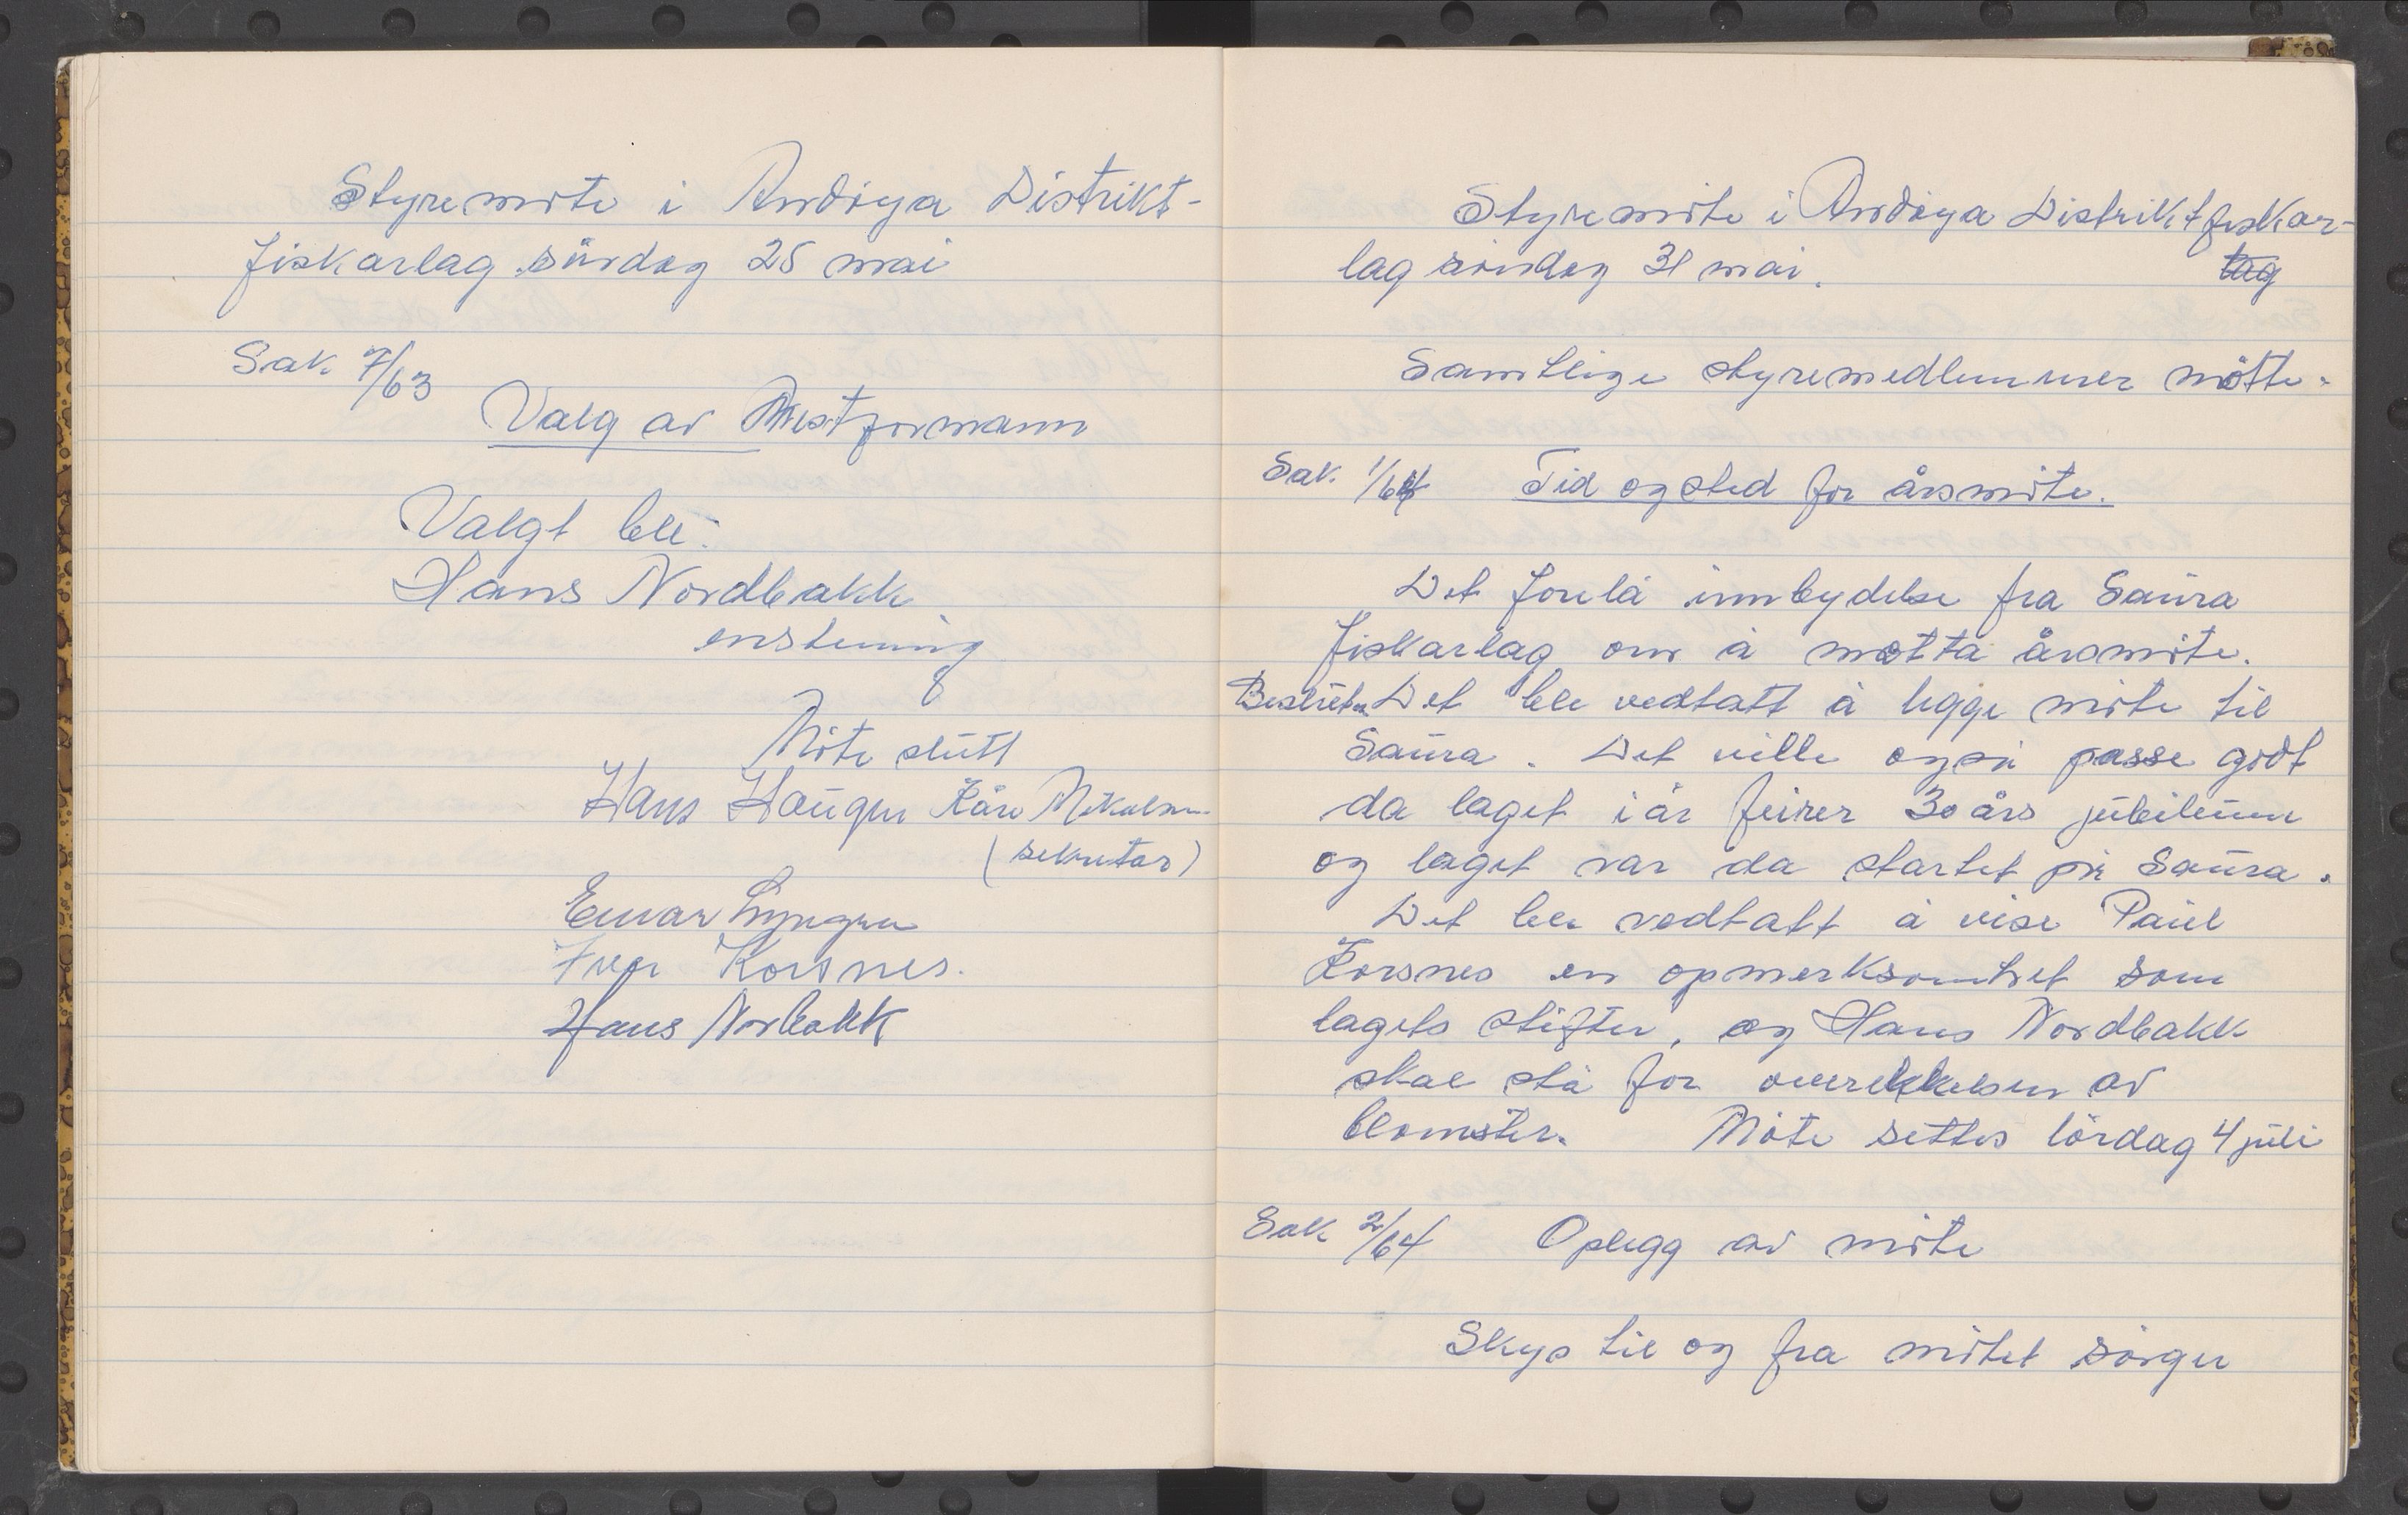 Styremöte i Andöya Distrikt-
fiskarlag søndag 25 mai
Sak 7/63
Valg av Nestformann
Valgt ble:
Hans Nordbakk
enstemmig
Möte slutt
Hans Haugen Kåre Mikalsen
(sekretær)
Einar Lyngen
Ivar Korsnes.
Hans Norbakk
Styremöte i Andöya Distriktfiskar-
lag söndag 31 mai. lag
Samtlige styremedlemmer mötte.
Sak 1/64 Tid og sted for årsmöte.
Det forelå innbydelse fra Saura
fiskarlag om å motta årsmöte.
Det ble vedtatt å legge möte til
Saura. Det ville også passe godt
da laget i år feirer 30 års jubileum
og laget var da startet på Saura.
Det ble vedtatt å vise Paul
Korsnes en opmerksomhet som
lagets stifter, og Hans Nordbakk
skal stå for overrekkelsen av
blomster. Möte settes lördag 4 juli
Sak 2/64 Oplegg av möte
Skys til og fra mötet sörger